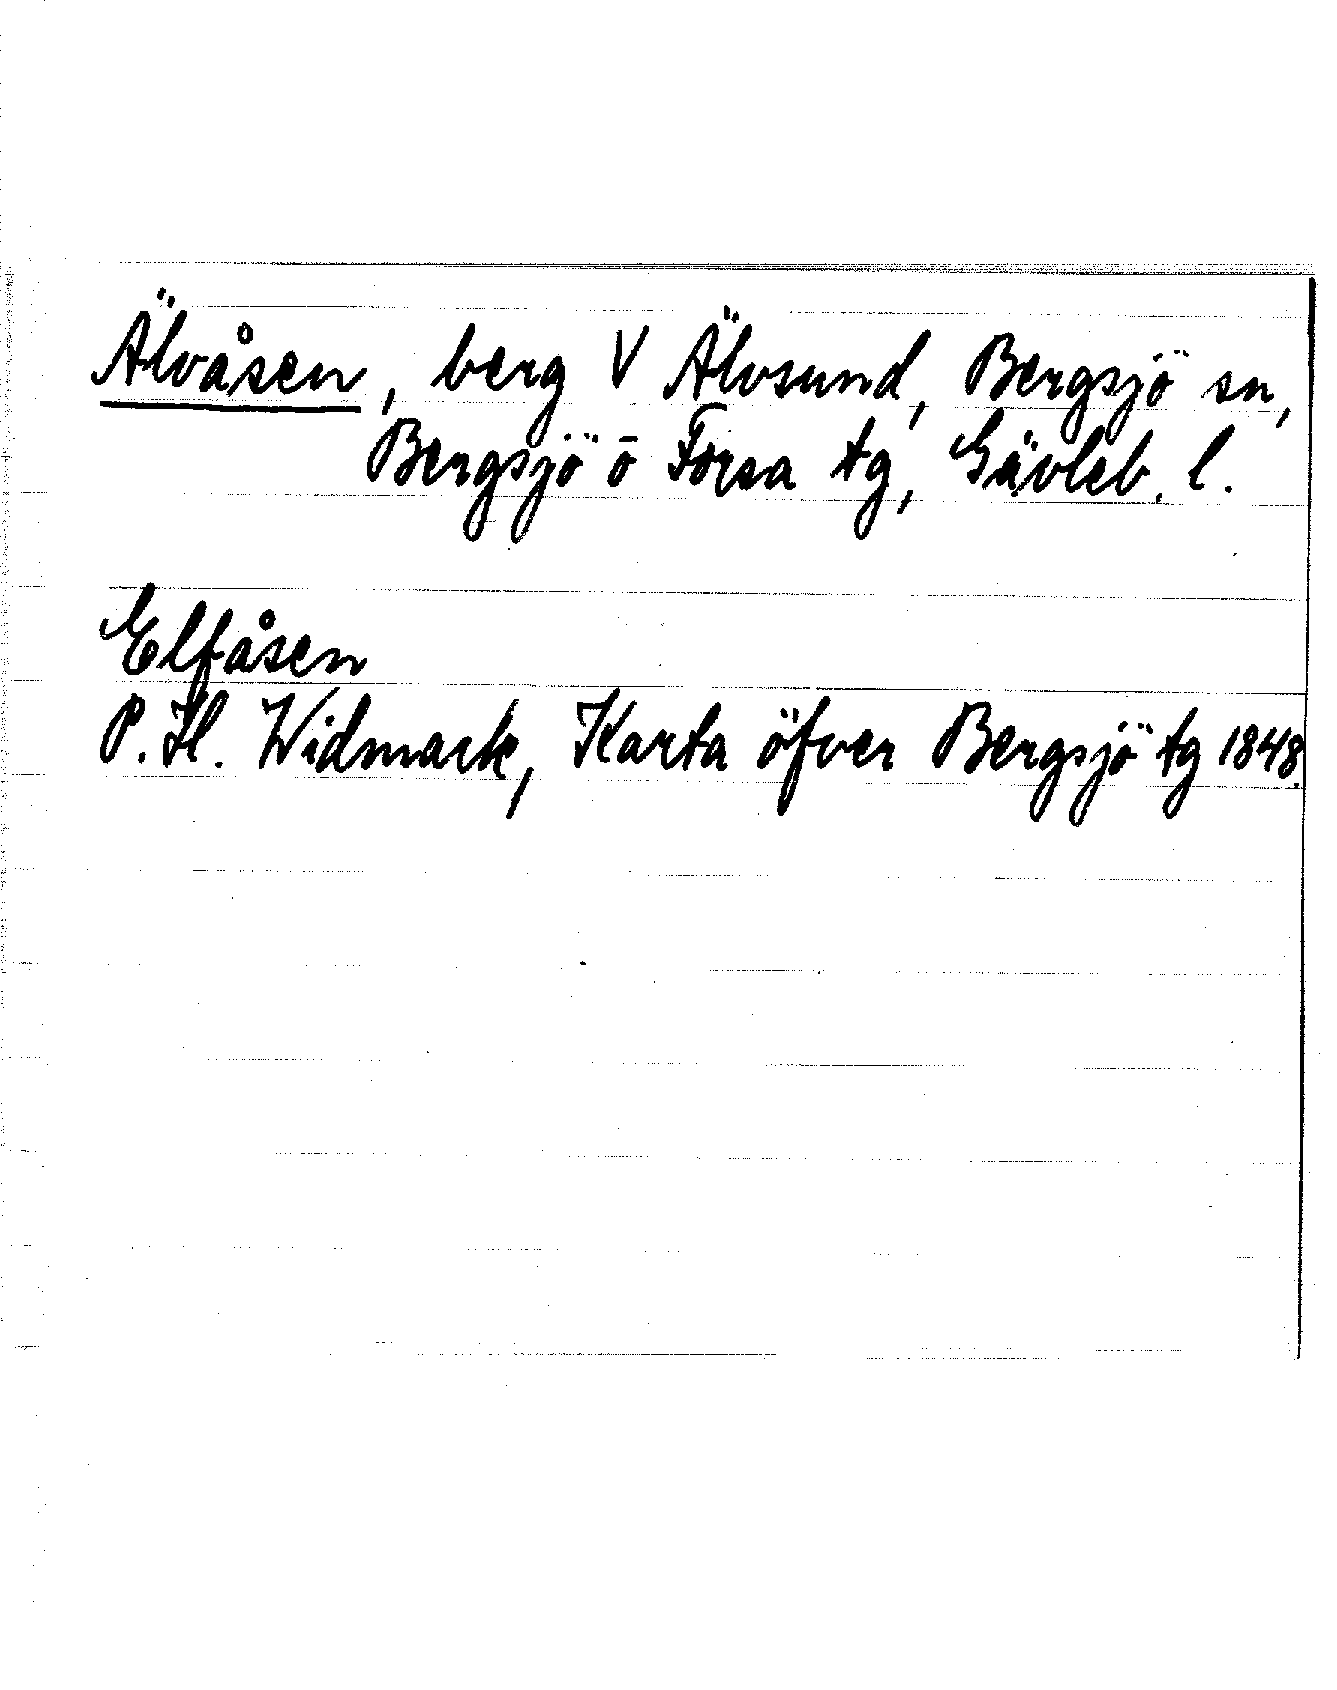 Älvåsen, berg V Älvsund, Bergsjö sn,
Bergsjö o Forsa tg, Gävleb. l.
Elfåsen
P. H. Widmark, Karta öfver Bergsjö tg 1848.